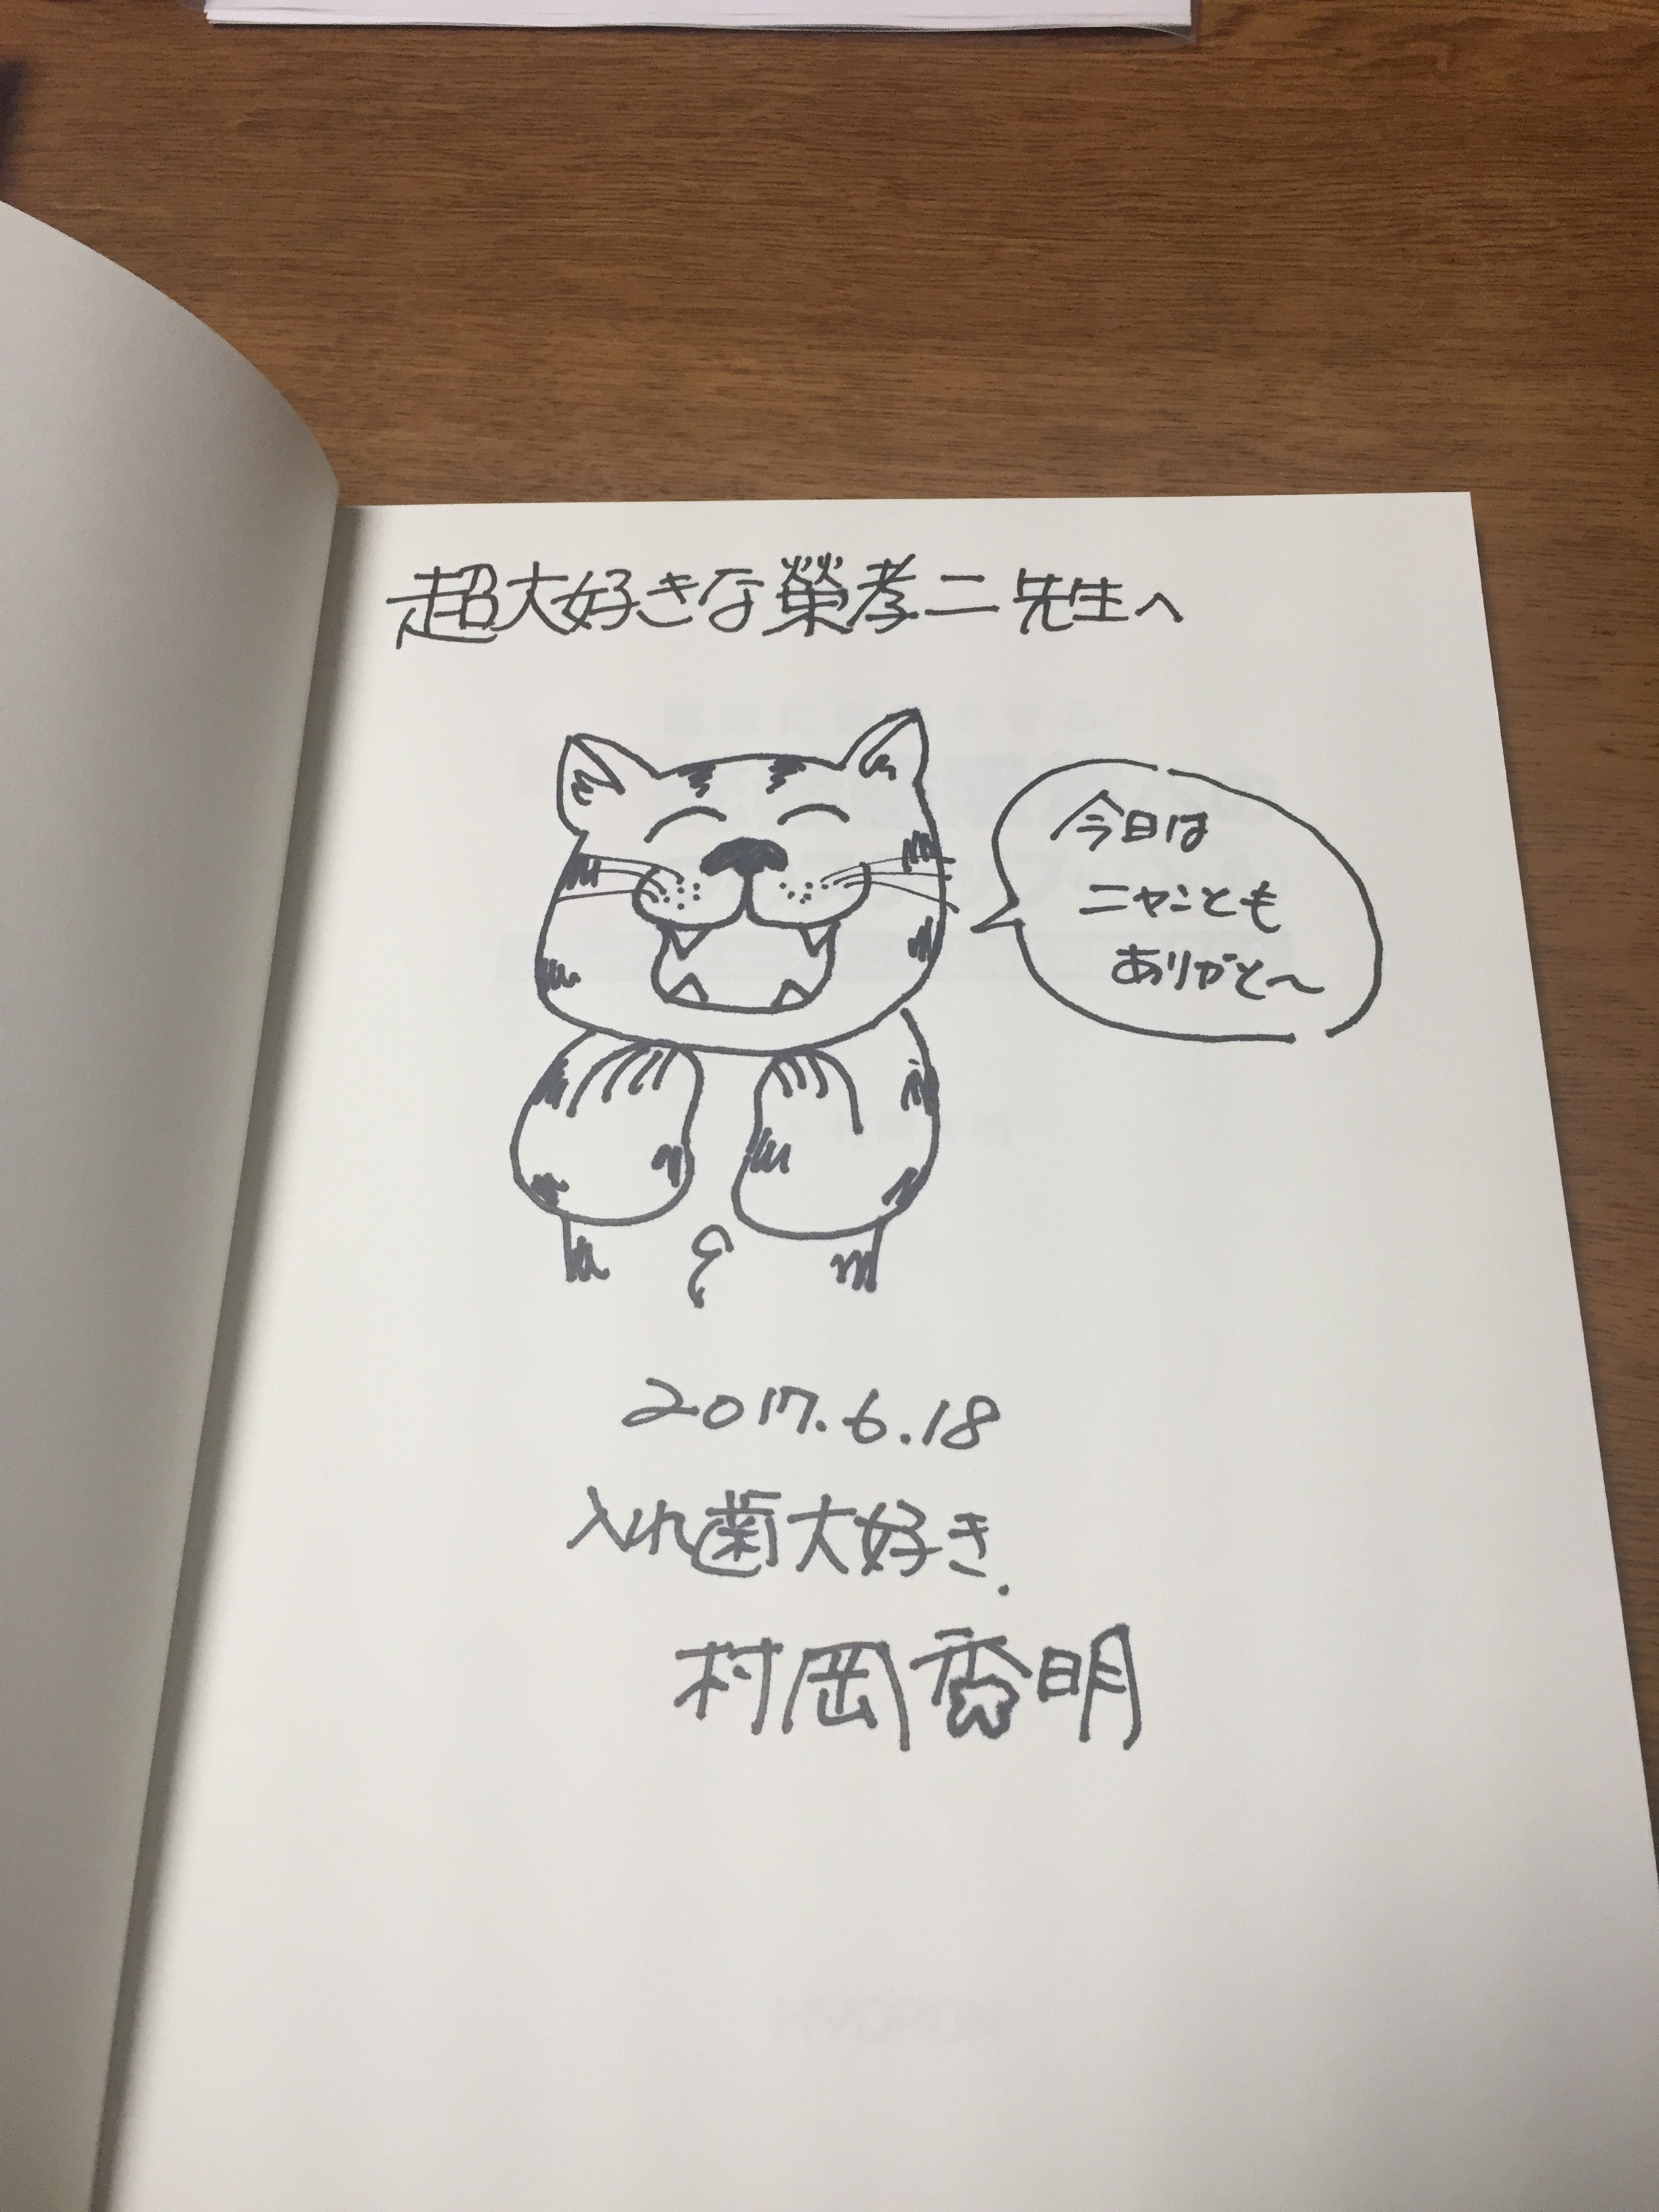 超大好きな榮孝二先生へ
今日は
ニャンとも
ありがと〜
2017.6.18
入れ歯大好き.
村岡秀明